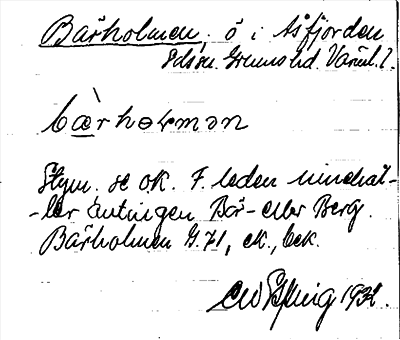 Barholmen, ö i Åsfjorden
Edsv. Grums hd. Värml. l.
bàrholmən
Etym. se ok. F. leden innehål-
ler antingen Bar- eller Berg.
Bärholmen G.71, ek., bek.
1932.